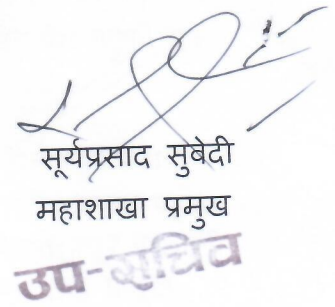 सूर्यप्रसाद सुवेदी
महाशाखा प्रमुख
उप-सचिव